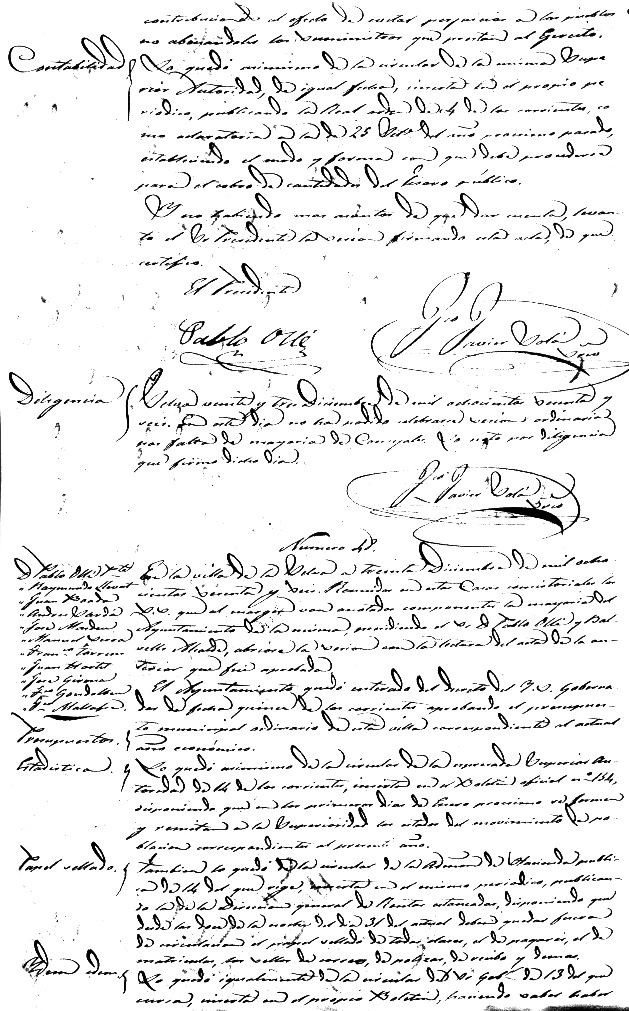 contribuciones al efecto de evitar perjuicios a los pueblos
no abonándoles los suministros que prestan al Ejército.
Contabilidad
Lo quedó asimismo de la circular de la misma Supe
rior Autoridad, de igual fecha, inserta en el propio pe
riódico, publicando la Real orden de 4 de los corrientes, co
mo aclaratoria a la de 25 del año proximo pasado,
estableciendo el modo y forma con que debe procederse
para el cobro de cantidades del Tesoro público.
Y no habiendo mas asuntos de que dar cuenta, levan
to el Sr Presidente la sesion firmando esta acta, de que
certifico.
El Presidente
Pablo Ollé
Javier Solá
Srio
Diligencia
Selva veinte y tres Diciembre de mil ochocientos setenta y
seis. En este dia no ha podido celebrarse sesion ordinaria
por falta de mayoria de Concejales. Lo noto por diligencia
que firmo dicho dia.
Javier Solá
Srio
Numero 48.
D. Pablo Ollé
Juan
José
Manuel
Juan
José Girona
En la villa de la Selva a treinta Diciembre de mil ocho
cientos setenta y seis. Reunidos en estas Casas consistoriales los
S.S. que al margen van anotados componentes la mayoria del
Ayuntamiento de la misma, presidiendo el Sr. D. Pablo Ollé y Bal
Alcalde, abriose la sesion con la lectura del acta de la an
terior que fué aprobada.
Presupuestos.
El Ayuntamiento quedó enterado del decreto del Y. S. Goberna
dor de fecha quince de los corrientes aprobando el presupues
to municipal ordinario de esta villa correspondiente al actual
año económico.
Estadistica.
Lo quedó asimismo de la circular de la expresada Superior Au
toridad de 14 de los corrientes, inserta en el Boletin oficial nº 154,
disponiendo que en los primeros dias de Enero proximo se formen
y remitan a la Superioridad los estados del movimiento de po
blacion correspondientes al presente año.
Papel sellado.
Tambien lo quedó de la circular de la Admon de Hacienda publi
ca de 14 del que rige, inserta en el mismo periodico, publican
do la de la Direccion general de Rentas estancadas, disponiendo que
desde las doce de la noche del dia 31 del actual deben quedar fuera
de circulacion el papel sellado de todas clases, el de pagarés, el de
matriculas, los sellos de correos, de polizas, de recibo y demas.
Idem idem
Lo quedó igualmente de la circular del Sr Gob. de 13 del que
cursa, inserta en el propio Boletin, haciendo saber haber